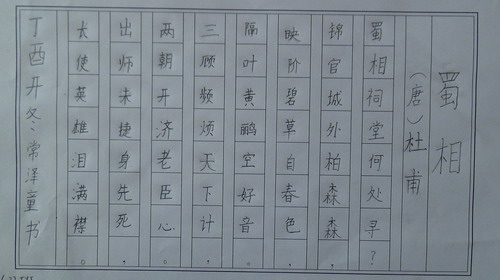 蜀相
（唐）杜甫
蜀相祠堂何处寻？
锦官城外柏森森。
映阶碧草自春色，
隔叶黄鹂空好音。
三顾频烦天下计，
两朝开济老臣心。
出师未捷身先死，
长使英雄泪满襟。
丁酉开冬、常泽童书